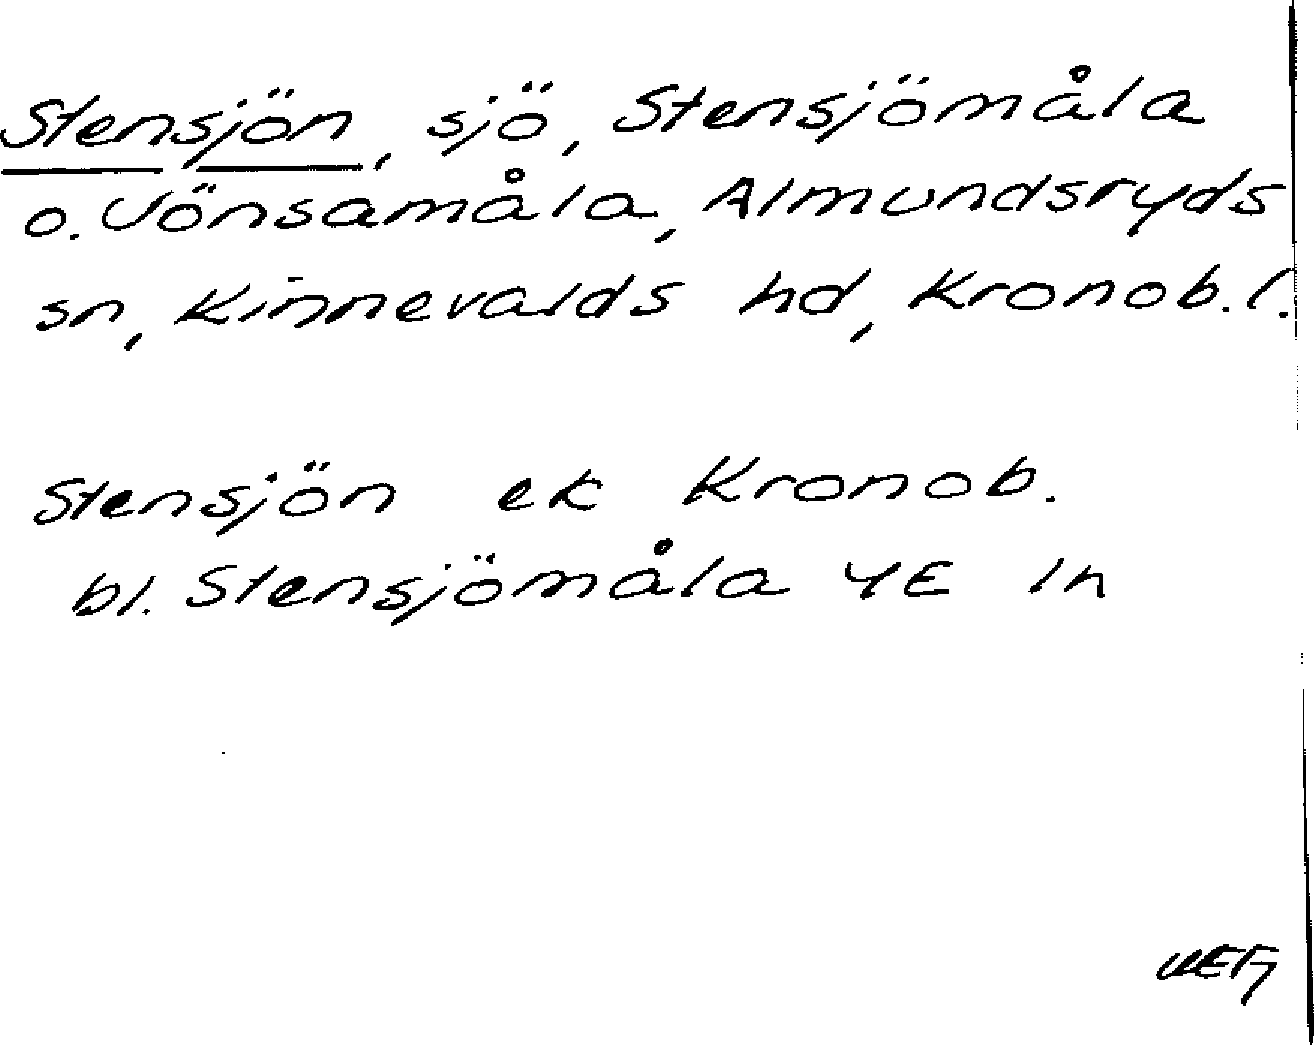 Stensjön, sjö, Stensjömåla
o. Jönsamåla, Almundsryds
sn, Kinnevalds hd, Kronob. l.
Stensjön ek Kronob.
bl. Stensjömåla 4E 1h